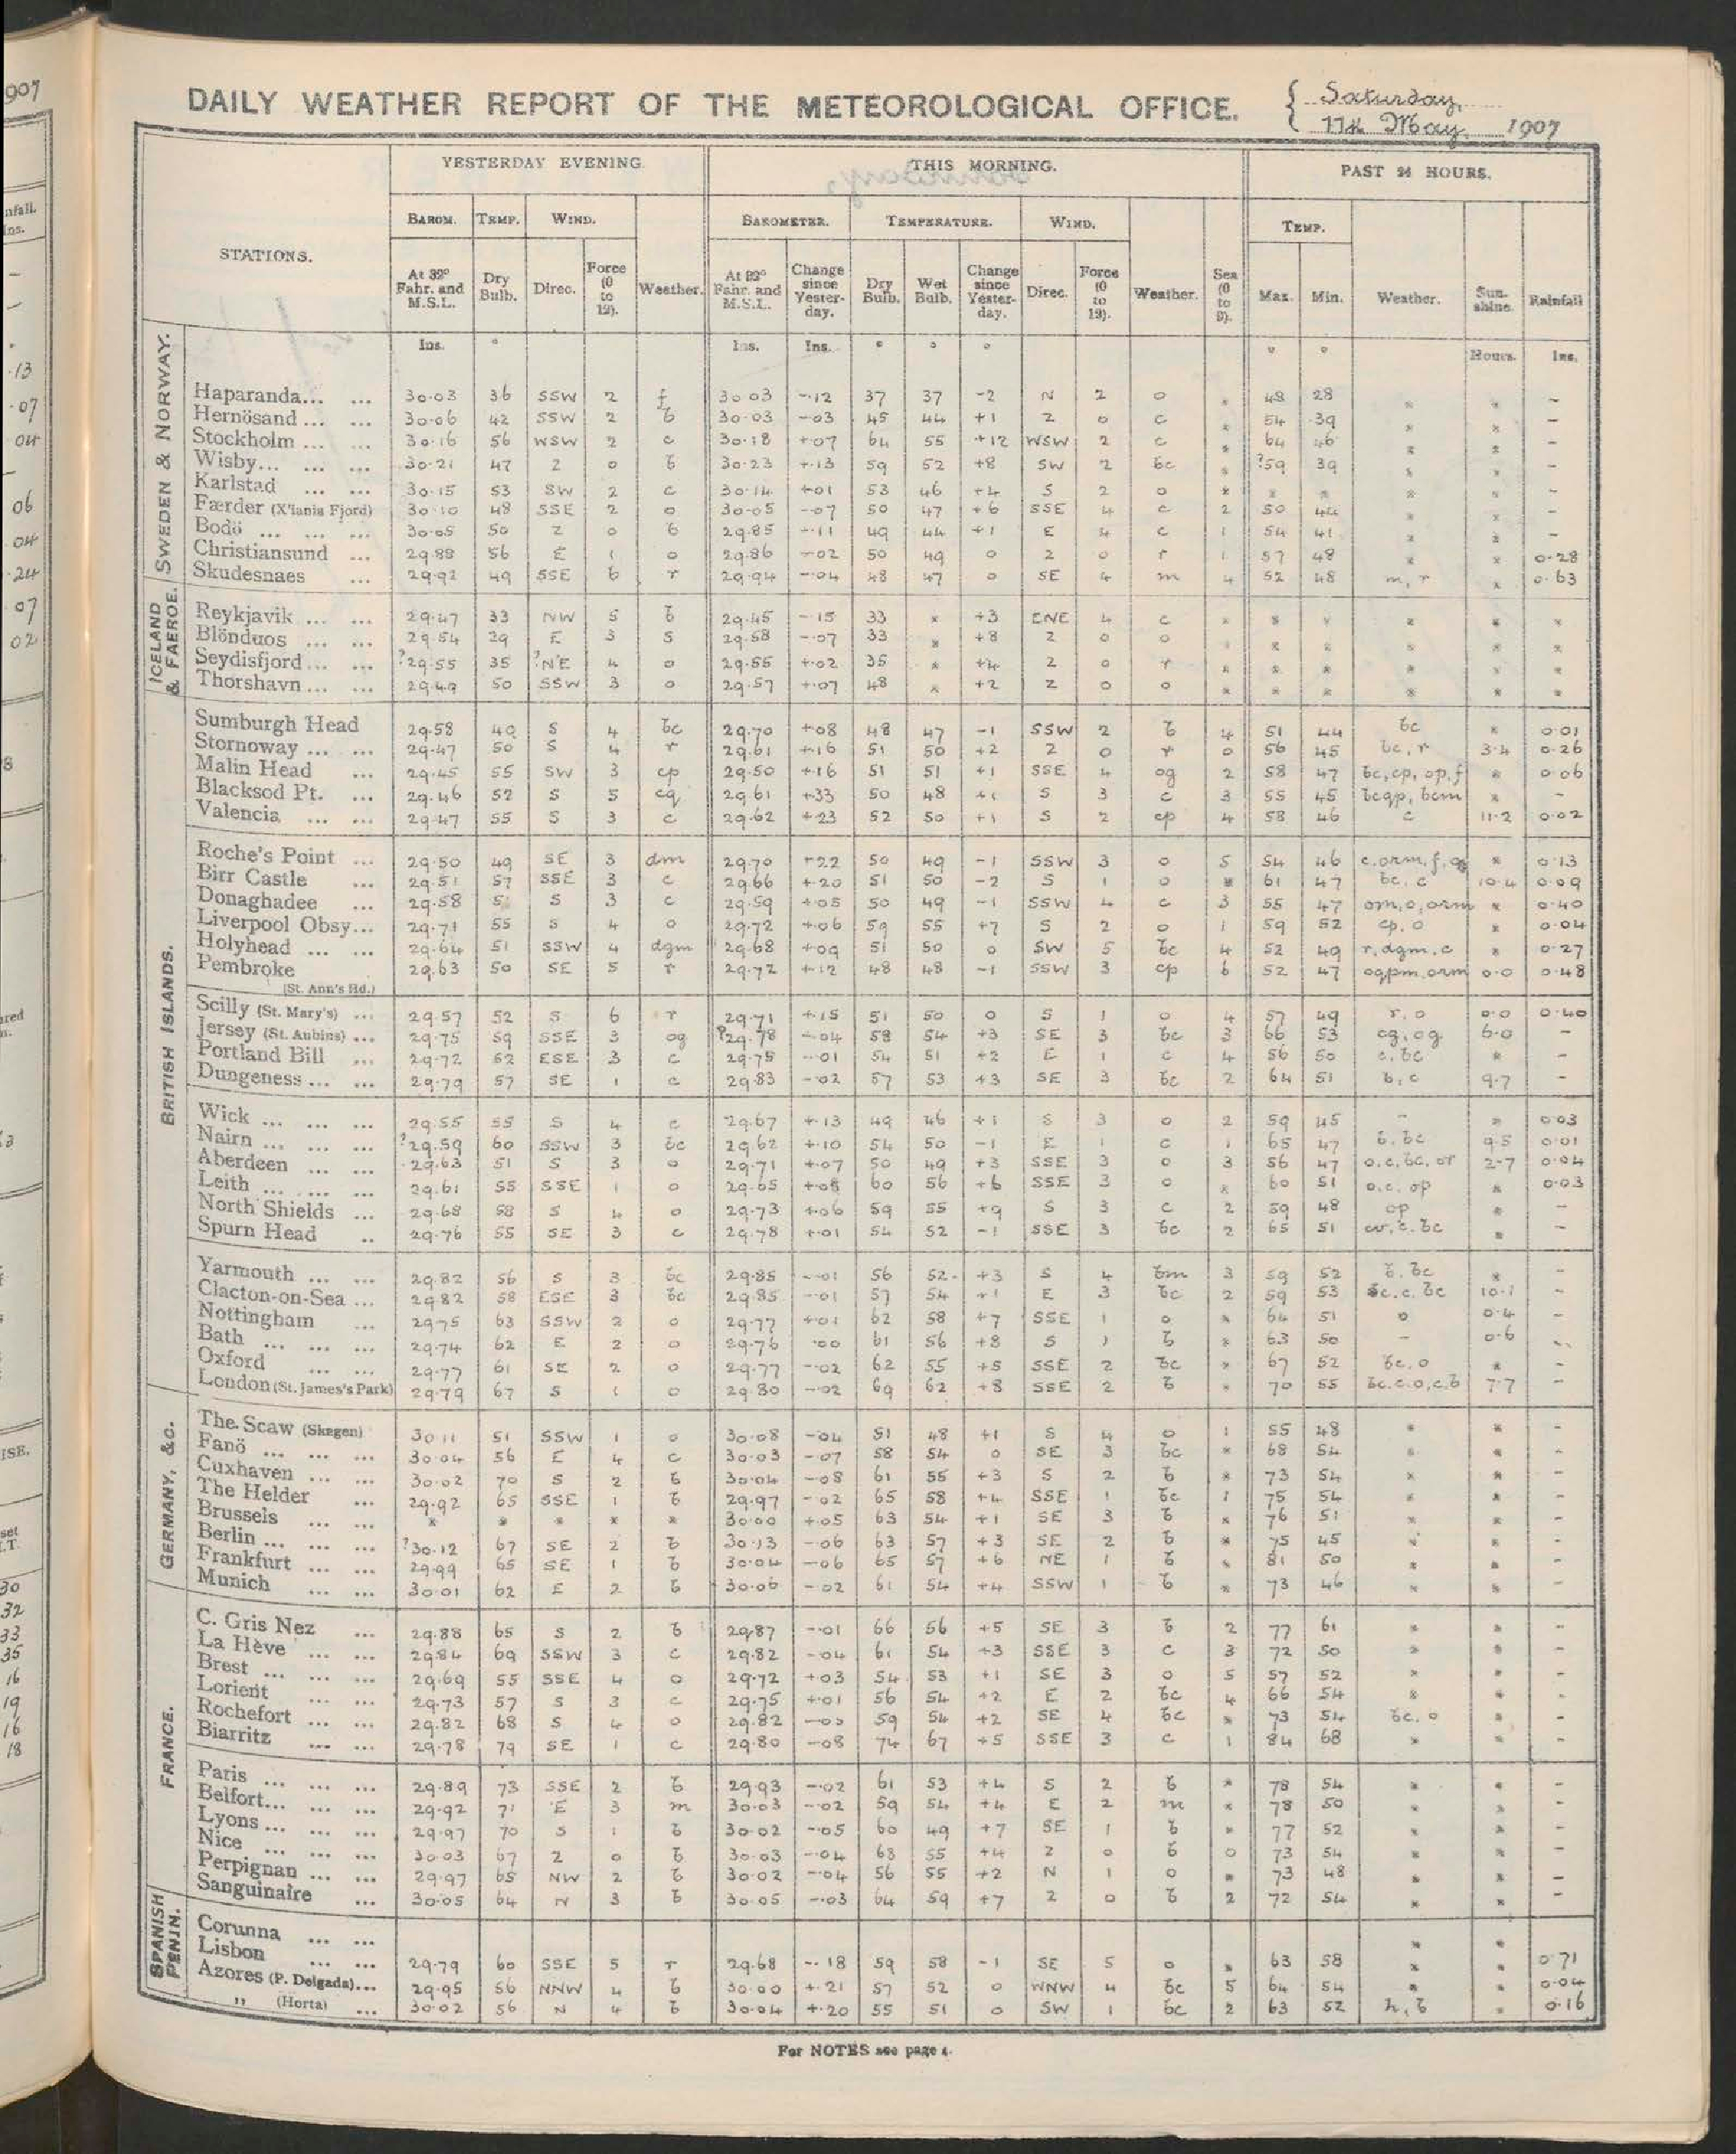 DAILY WEATHER REPORT OF THE METEOROLOGICAL OFFICE. { Saturday,
11th May, 1907
YESTERDAY EVENING. THIS MORNING. PAST 24 HOURS.
STATIONS. BAROM. TEMP. WIND. Weather. BAROMETER. TEMPERATURE. WIND. Weather. Sea (0 to 9). TEMP. Weather. Sunshine. Rainfall
At 32° Fahr. and M.S.L. Dry Bulb. Direc. Force (0 to 12). At 32° Fahr. and M.S.L. Change since Yesterday. Dry Bulb. Wet Bulb. Change since Yesterday. Direc. Force (0 to 12). Max. Min.
Ins. ° Ins. Ins. ° ° ° ° ° Hours. Ins.
SWEDEN & NORWAY.
Haparanda... ... 30.03 36 SSW 2 f 30.03 -.12 37 37 -2 N 2 o * 48 28 * * -
Hernösand ... ... 30.06 42 SSW 2 b 30.03 -.03 45 44 +1 Z 0 c * 54 39 * * -
Stockholm ... ... 30.16 56 WSW 2 c 30.18 +.07 64 55 +12 WSW 2 c * 64 46 * * -
Wisby... ... ... 30.21 47 Z 0 b 30.23 +.13 59 52 +8 SW 2 bc * ?59 39 * * -
Karlstad ... ... 30.15 53 SW 2 c 30.14 +.01 53 46 +4 S 2 o * * * * * -
Færder (X'iania Fjord) 30.10 48 SSE 2 o 30.05 -.07 50 47 +6 SSE 4 c 2 50 44 * * -
Bodö ... ... ... 30.05 50 Z 0 b 29.85 -.11 49 44 +1 E 4 c 1 54 41 * * -
Christiansund ... 29.88 56 E 1 o 29.86 -.02 50 49 0 Z 0 r 1 57 48 * * 0.28
Skudesnaes ... 29.92 49 SSE 6 r 29.94 -.04 48 47 0 SE 4 m 4 52 48 m, r * 0.63
ICELAND & FAEROE.
Reykjavik ... ... 29.47 33 NW 5 b 29.45 -.15 33 * +3 ENE 4 c * * * * * *
Blönduos ... ... 29.54 29 E 3 s 29.58 -.07 33 * +8 Z 0 o * * * * * *
Seydisfjord ... ... ?29.55 35 ?NE 4 o 29.55 +.02 35 * +4 Z 0 r * * * * * *
Thorshavn ... ... 29.49 50 SSW 3 o 29.57 +.07 48 * +2 Z 0 o * * * * * *
BRITISH ISLANDS.
Sumburgh Head 29.58 49 S 4 bc 29.70 +.08 48 47 -1 SSW 2 b 4 51 44 bc * 0.01
Stornoway ... ... 29.47 50 S 4 r 29.61 +.16 51 50 +2 Z 0 r 0 56 45 bc, r 3.4 0.26
Malin Head ... 29.45 55 SW 3 cp 29.50 +.16 51 51 +1 SSE 4 og 2 58 47 bc, cp, op, f * 0.06
Blacksod Pt. ... 29.46 52 S 5 cq 29.61 +.33 50 48 +1 S 3 c 3 55 45 bcqp, bcm * -
Valencia ... ... 29.47 55 S 3 c 29.62 +.23 52 50 +1 S 2 cp 4 58 46 c 11.2 0.02
Roche's Point ... 29.50 49 SE 3 dm 29.70 +.22 50 49 -1 SSW 3 o 5 54 46 c, orm, f, og * 0.13
Birr Castle ... 29.51 57 SSE 3 c 29.66 +.20 51 50 -2 S 1 o * 61 47 bc, c 10.4 0.09
Donaghadee ... 29.58 5 S 3 c 29.59 +.05 50 49 -1 SSW 4 c 3 55 47 om, o, orm * 0.40
Liverpool Obsy... 29.71 55 S 4 o 29.72 +.06 59 55 +7 S 2 o 1 59 52 cp, o * 0.04
Holyhead ... ... 29.64 51 SSW 4 dgm 29.68 +.09 51 50 0 SW 5 bc 4 52 49 r, dgm, c * 0.27
Pembroke (St. Ann's Hd.) 29.63 50 SE 5 r 29.72 +.12 48 48 -1 SSW 3 cp 6 52 47 ogpm, orm 0.0 0.48
Scilly (St. Mary's) ... 29.57 52 S 6 r 29.71 +.15 51 50 0 S 1 o 4 57 49 r, o 0.0 0.40
Jersey (St. Aubins) ... 29.75 59 SSE 3 og ?29.78 -.04 58 54 +3 SE 3 bc 3 66 53 cg, og 6.0 -
Portland Bill ... 29.72 52 ESE 3 c 29.75 -.01 54 51 +2 E 1 c 4 56 50 c, bc * -
Dungeness ... ... 29.79 57 SE 1 c 29.83 -.02 57 53 +3 SE 3 bc 2 64 51 b, c 9.7 -
Wick ... ... ... 29.55 55 S 4 c 29.67 +.13 49 46 +1 S 3 o 2 59 45 - * 0.03
Nairn ... ... ... ?29.59 60 SSW 3 bc 29.62 +.10 54 50 -1 E 1 c 1 65 47 b, bc 9.5 0.01
Aberdeen ... ... 29.63 51 S 3 o 29.71 +.07 50 49 +3 SSE 3 o 3 56 47 o, c, bc, or 2.7 0.04
Leith ... ... ... 29.61 55 SSE 1 o 29.65 +.08 60 56 +6 SSE 3 o * 60 51 o, c, op * 0.03
North Shields ... 29.68 58 S 4 o 29.73 +.06 59 55 +9 S 3 c 2 59 48 op * -
Spurn Head .. 29.76 55 SE 3 c 29.78 +.01 54 52 -1 SSE 3 bc 2 65 51 cw, c, bc * -
Yarmouth ... ... 29.82 56 S 3 bc 29.85 -.01 56 52 +3 S 4 bm 3 59 52 b, bc * -
Clacton-on-Sea ... 29.82 58 ESE 3 bc 29.85 -.01 57 54 +1 E 3 bc 2 59 53 bc, c, bc 10.1 -
Nottingham ... 29.75 63 SSW 2 o 29.77 +.01 62 58 +7 SSE 1 o * 64 51 o 0.4 -
Bath ... ... ... 29.74 62 E 2 o 29.76 .00 61 56 +8 S 1 b * 63 50 - 0.6
Oxford ... ... 29.77 61 SE 2 o 29.77 -.02 62 55 +5 SSE 2 bc * 67 52 bc, o * -
London (St. James's Park) 29.79 67 S 1 o 29.80 -.02 69 62 +8 SSE 2 b * 70 55 bc, c, o, c, b 7.7 -
GERMANY, &c.
The Scaw (Skagen) 30.11 51 SSW 1 o 30.08 -.04 51 48 +1 S 4 o 1 55 48 * * -
Fanö ... ... ... 30.04 56 E 4 c 30.03 -.07 58 54 0 SE 3 bc * 68 54 * * -
Cuxhaven ... ... 30.02 70 S 2 b 30.04 -.08 61 55 +3 S 2 b * 73 54 * * -
The Helder ... 29.92 65 SSE 1 b 29.97 -.02 65 58 +4 SSE 1 bc 1 75 54 * * -
Brussels ... ... * * * * * 30.00 +.05 63 54 +1 SE 3 b * 76 51 * * -
Berlin ... ... ... ?30.12 67 SE 2 b 30.13 -.06 63 57 +3 SE 2 b * 75 45 * * -
Frankfurt ... ... 29.99 65 SE 1 b 30.04 -.06 65 57 +6 NE 1 b * 81 50 * * -
Munich ... ... 30.01 62 E 2 b 30.06 -.02 61 54 +4 SSW 1 b * 73 46 * * -
FRANCE.
C. Gris Nez ... 29.88 65 S 2 b 29.87 -.01 66 56 +5 SE 3 b 2 77 61 * * -
La Hève ... ... 29.84 69 SSW 3 c 29.82 -.04 61 54 +3 SSE 3 c 3 72 50 * * -
Brest ... ... ... 29.69 55 SSE 4 o 29.72 +.03 54 53 +1 SE 3 o 5 57 52 * * -
Lorient ... ... 29.73 57 S 3 c 29.75 +.01 56 54 +2 E 2 bc 4 66 54 * * -
Rochefort ... ... 29.82 68 S 4 o 29.82 59 54 +2 SE 4 bc * 73 54 bc, o * -
Biarritz ... ... 29.78 79 SE 1 c 29.80 -.08 74 67 +5 SSE 3 c 1 84 68 * * -
Paris ... ... ... 29.89 73 SSE 2 b 29.93 -.02 61 53 +4 S 2 b * 78 54 * * -
Belfort... ... ... 29.92 71 E 3 m 30.03 -.02 59 54 +4 E 2 m * 78 50 * * -
Lyons ... ... ... 29.97 70 S 1 b 30.02 -.05 60 49 +7 SE 1 b * 77 52 * * -
Nice ... ... ... 30.03 67 Z 0 b 30.03 -.04 63 55 +4 Z 0 b 0 73 54 * * -
Perpignan ... ... 29.97 65 NW 2 b 30.02 -.04 56 55 +2 N 1 o * 73 48 * * -
Sanguinaire ... 30.05 64 N 3 b 30.05 -.03 64 59 +7 Z 0 b 2 72 54 * * -
SPANISH PENIN.
Corunna ... ... * *
Lisbon ... ... 29.79 60 SSE 5 r 29.68 -.18 59 58 -1 SE 5 o * 63 58 * * 0.71
Azores (P. Delgada)... 29.95 56 NNW 4 b 30.00 +.21 57 52 0 WNW 4 bc 5 64 54 * * 0.04
,, (Horta) ... 30.02 56 N 4 b 30.04 +.20 55 51 0 SW 1 bc 2 63 52 h, b * 0.16
For NOTES see page 4.